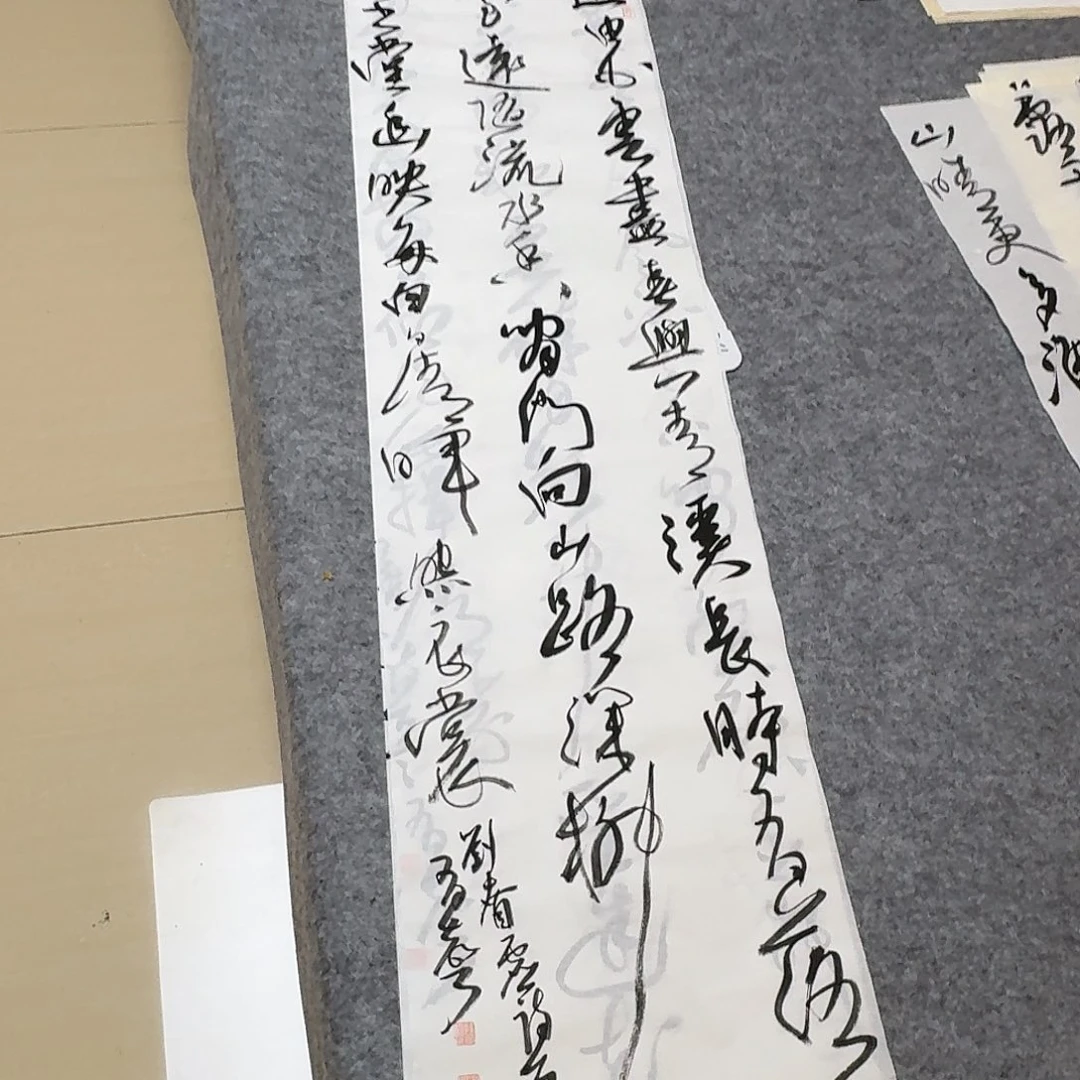 由白雲盡春與青溪長時有落
遠隨流水香閒門向山路深柳
書堂幽映每白日清暉照衣裳
劉眘虛詩
山晴更多